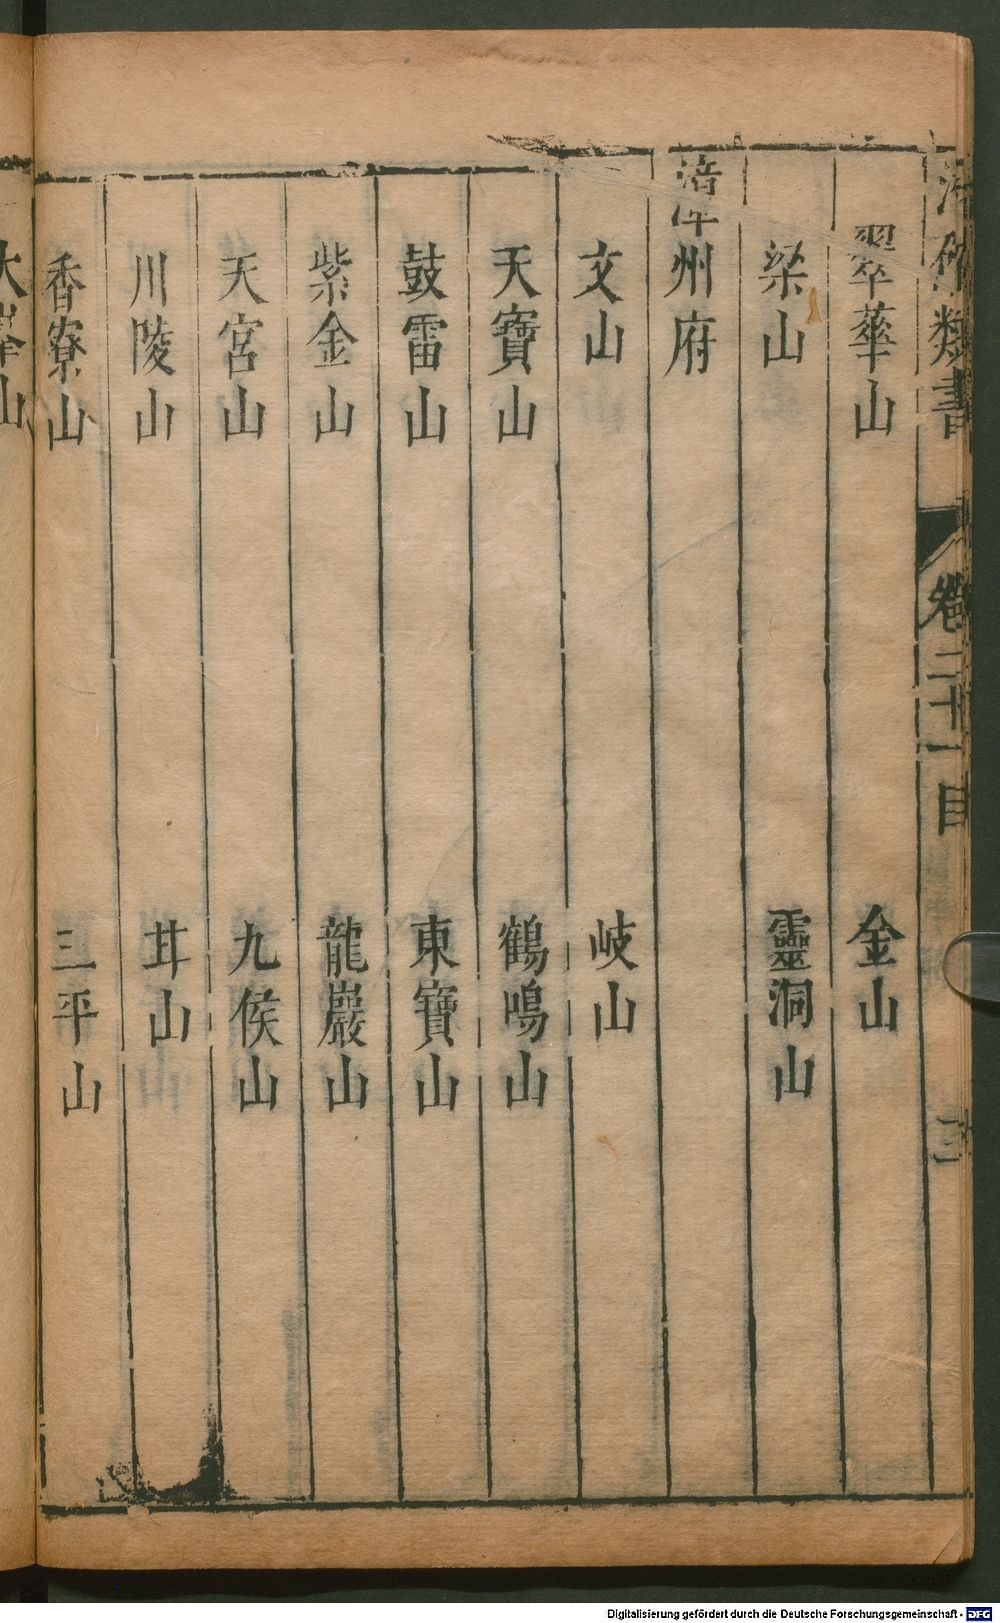 潛確類書 卷二十一目 三
翠華山 金山
梁山 靈洞山
漳州府
文山 岐山
天寶山 鶴鳴山
鼓雷山 東寶山
紫金山 龍巖山
天宮山 九侯山
川陵山 山
香寮山 三平山
大峯山
Digitalisierung gefördert durch die Deutsche Forschungsgemeinschaft - DFG